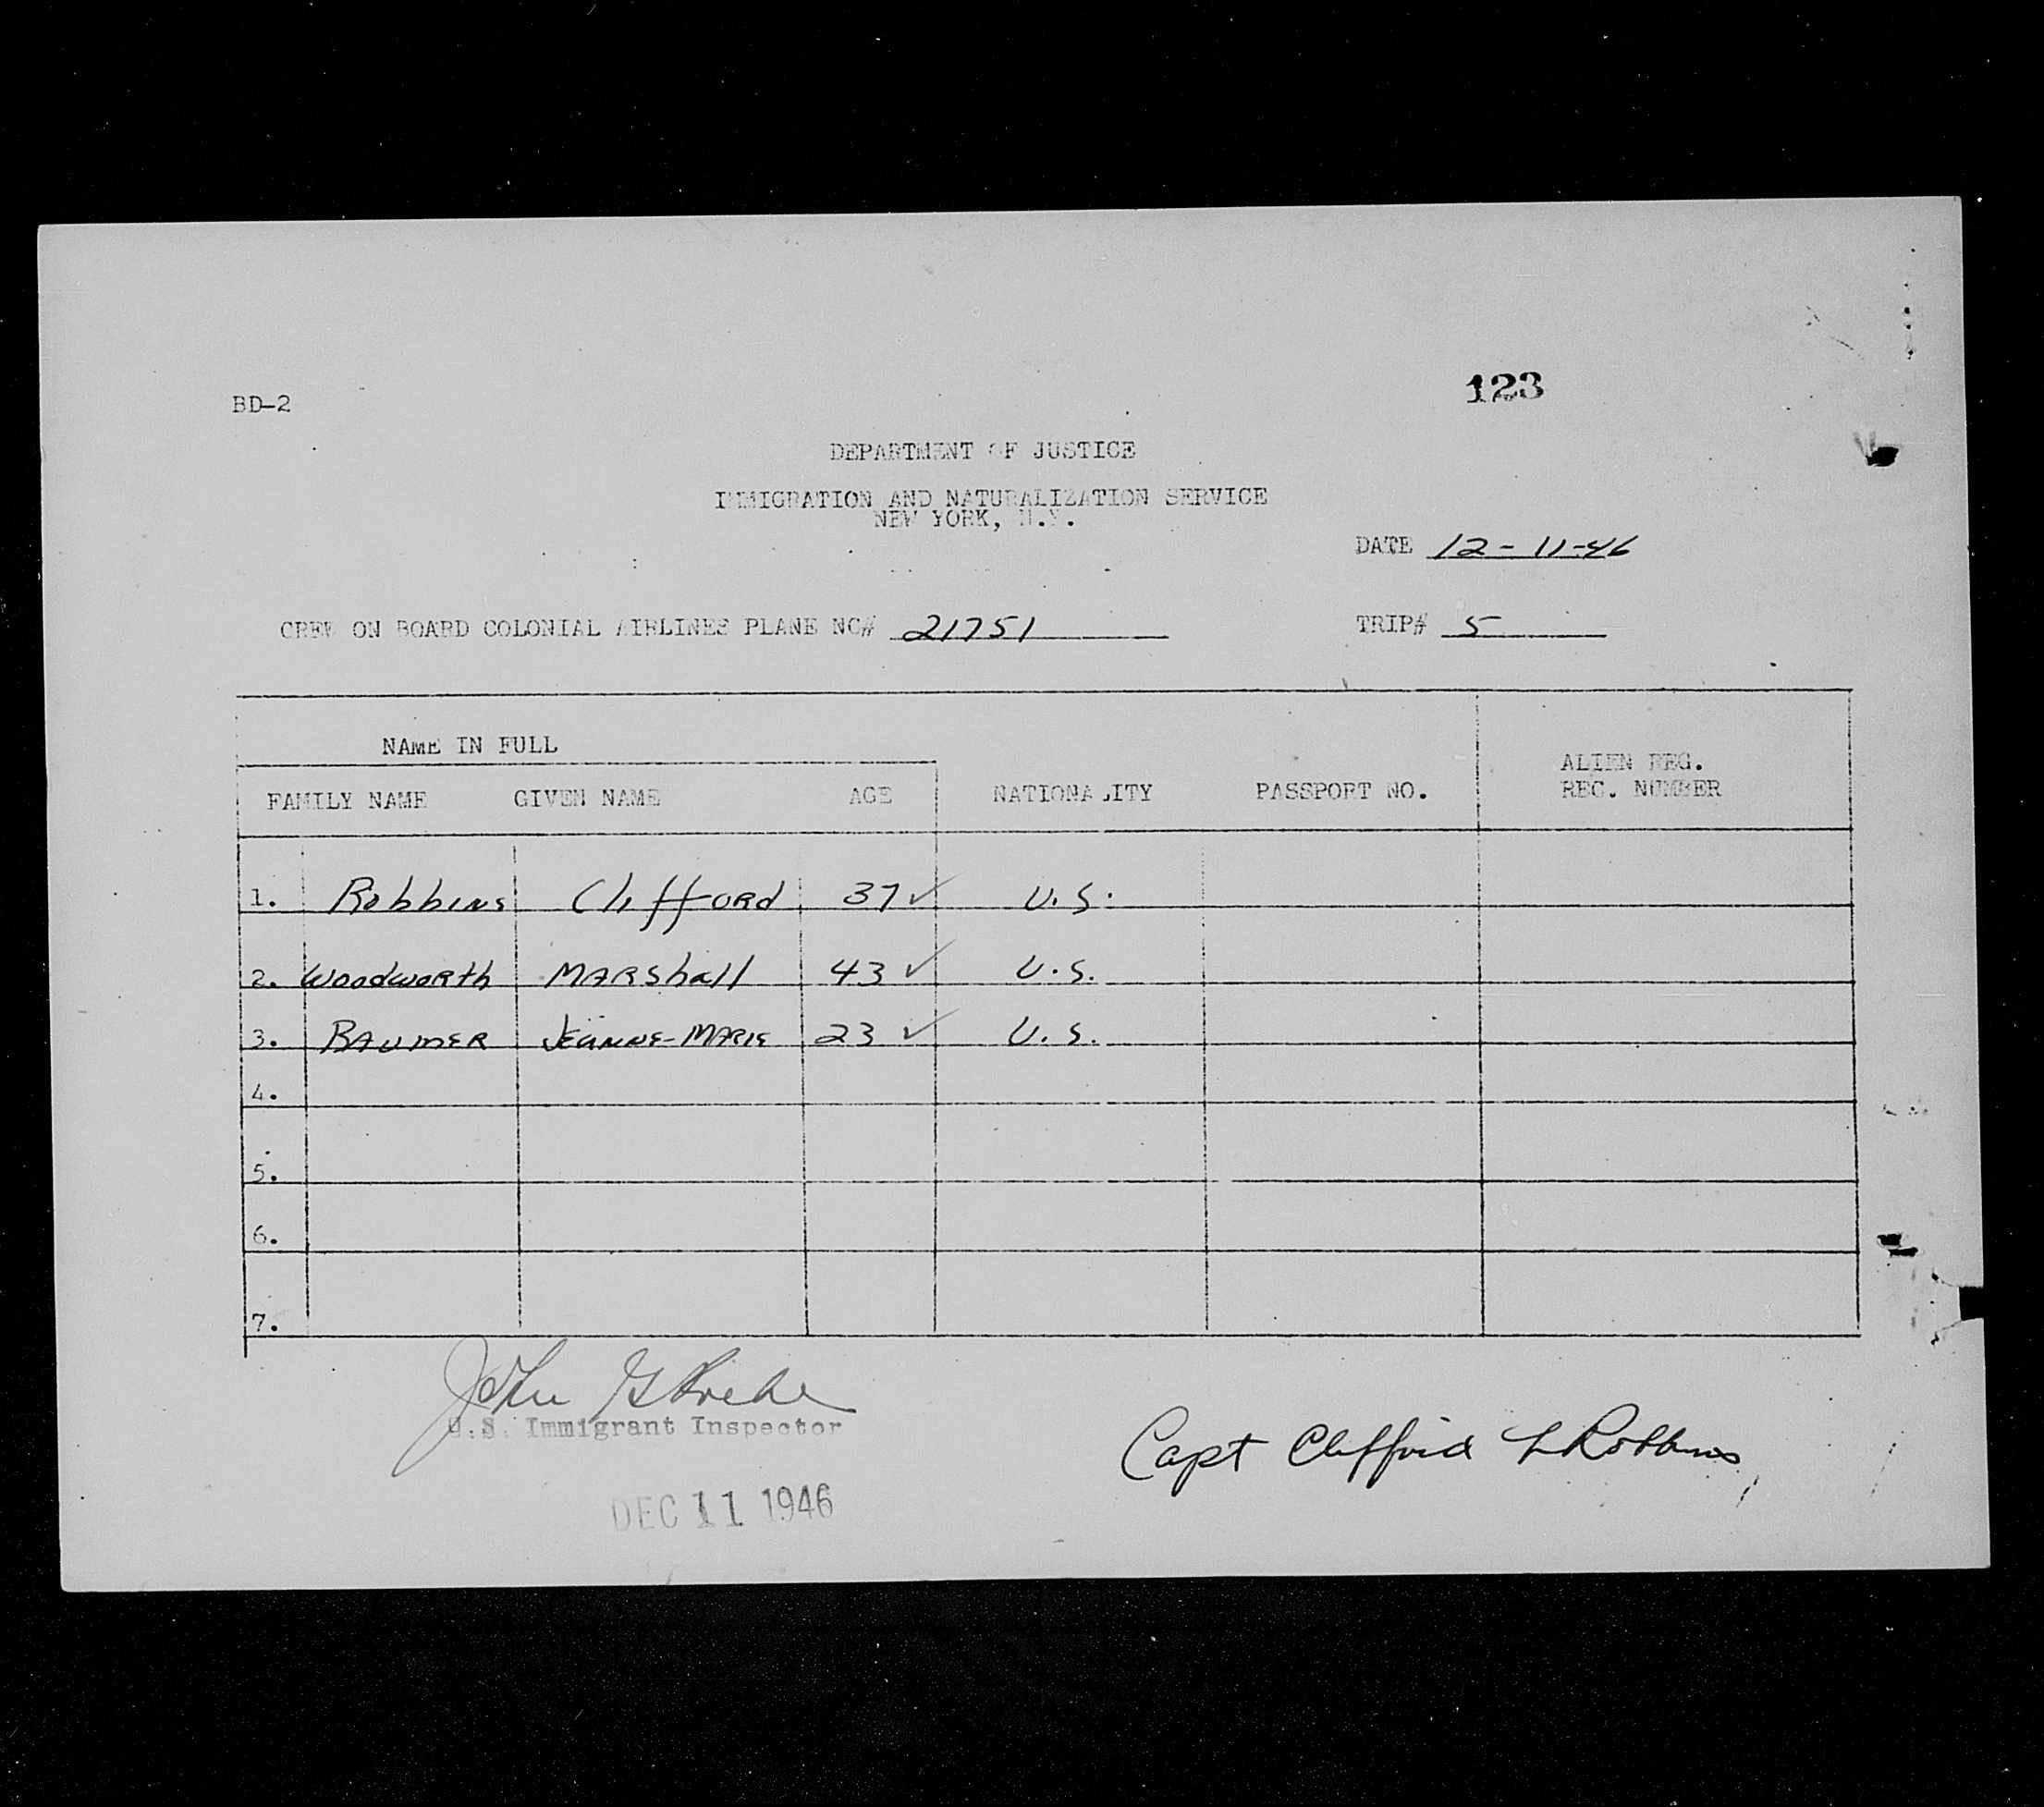 123
BD-2
DEPARTMENT OF JUSTICE
IMMIGRATION AND NATURALIZATION SERVICE
NEW YORK, N.Y.
DATE 12-11-46
CREW ON BOARD COLONIAL AIRLINES PLANE NO# 21751 TRIP# 5
NAME IN FULL
FAMILY NAME GIVEN NAME AGE NATIONALITY PASSPORT NO. ALIEN REG.
REC. NUMBER
1. Robbins Clifford 37 ✓ U.S.
2. Woodworth Marshall 43 ✓ U.S.
3. BAUMER JEANNE-MARIE 23 ✓ U.S.
4.
5.
6.
7.
John G
U.S. Immigrant Inspector
Capt Clifford L Robbins
DEC 11 1946